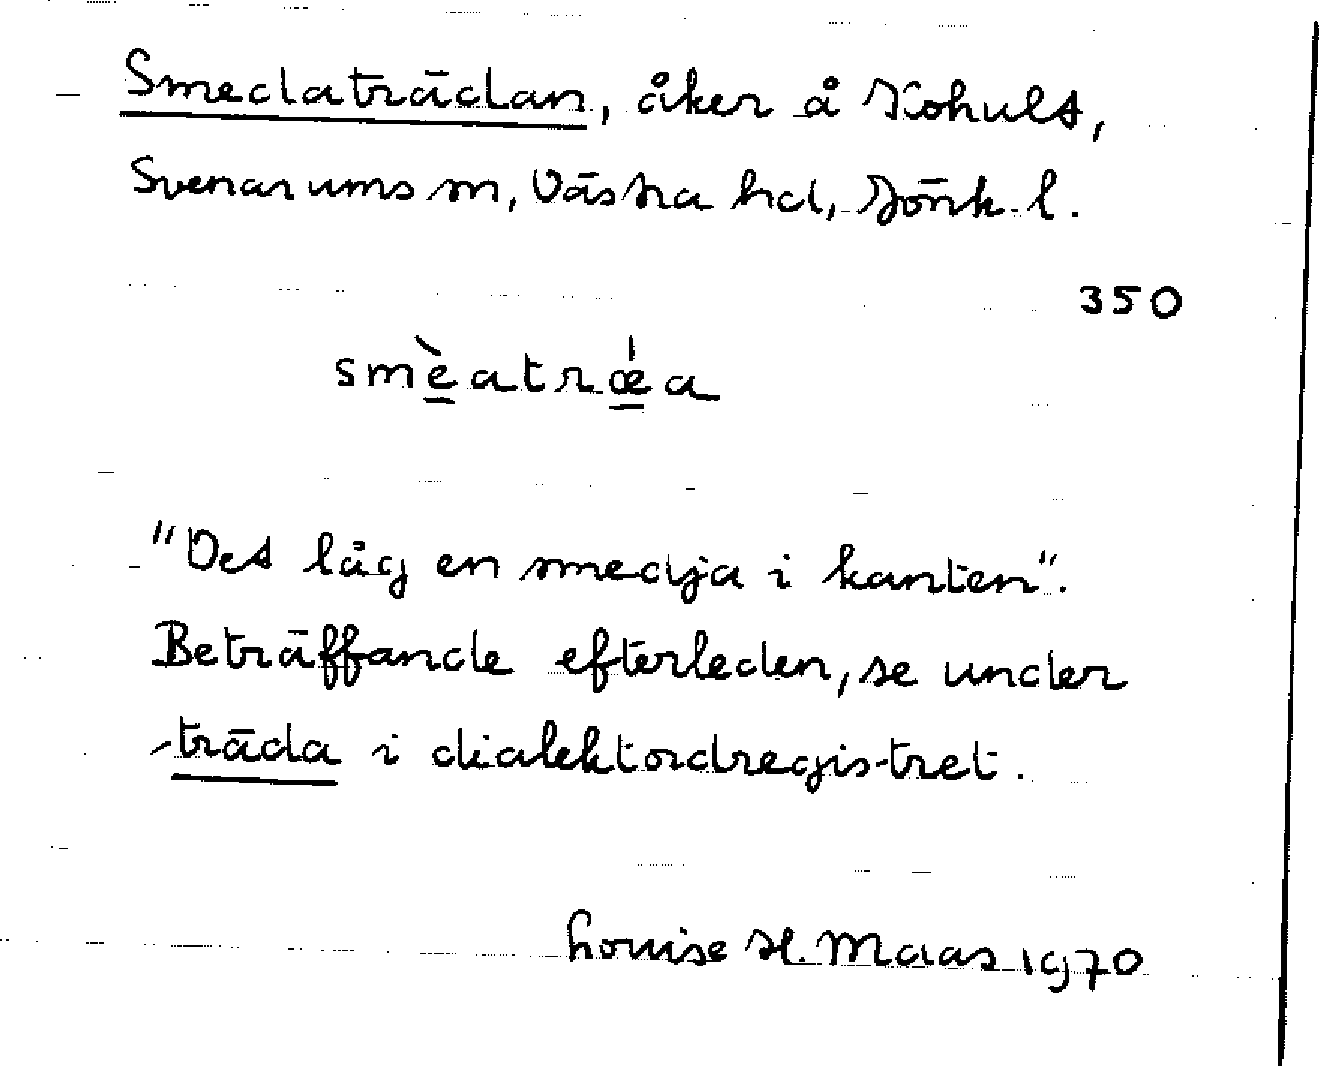 Smedaträdan, åker å Kohult,
Svenarums sn, Västra hd, Jönk. l.
350
smèatrǽa
"Det låg en smedja i kanten".
Beträffande efterleden, se under
-träda i dialektordregistret.
Louise H. Maas 1970